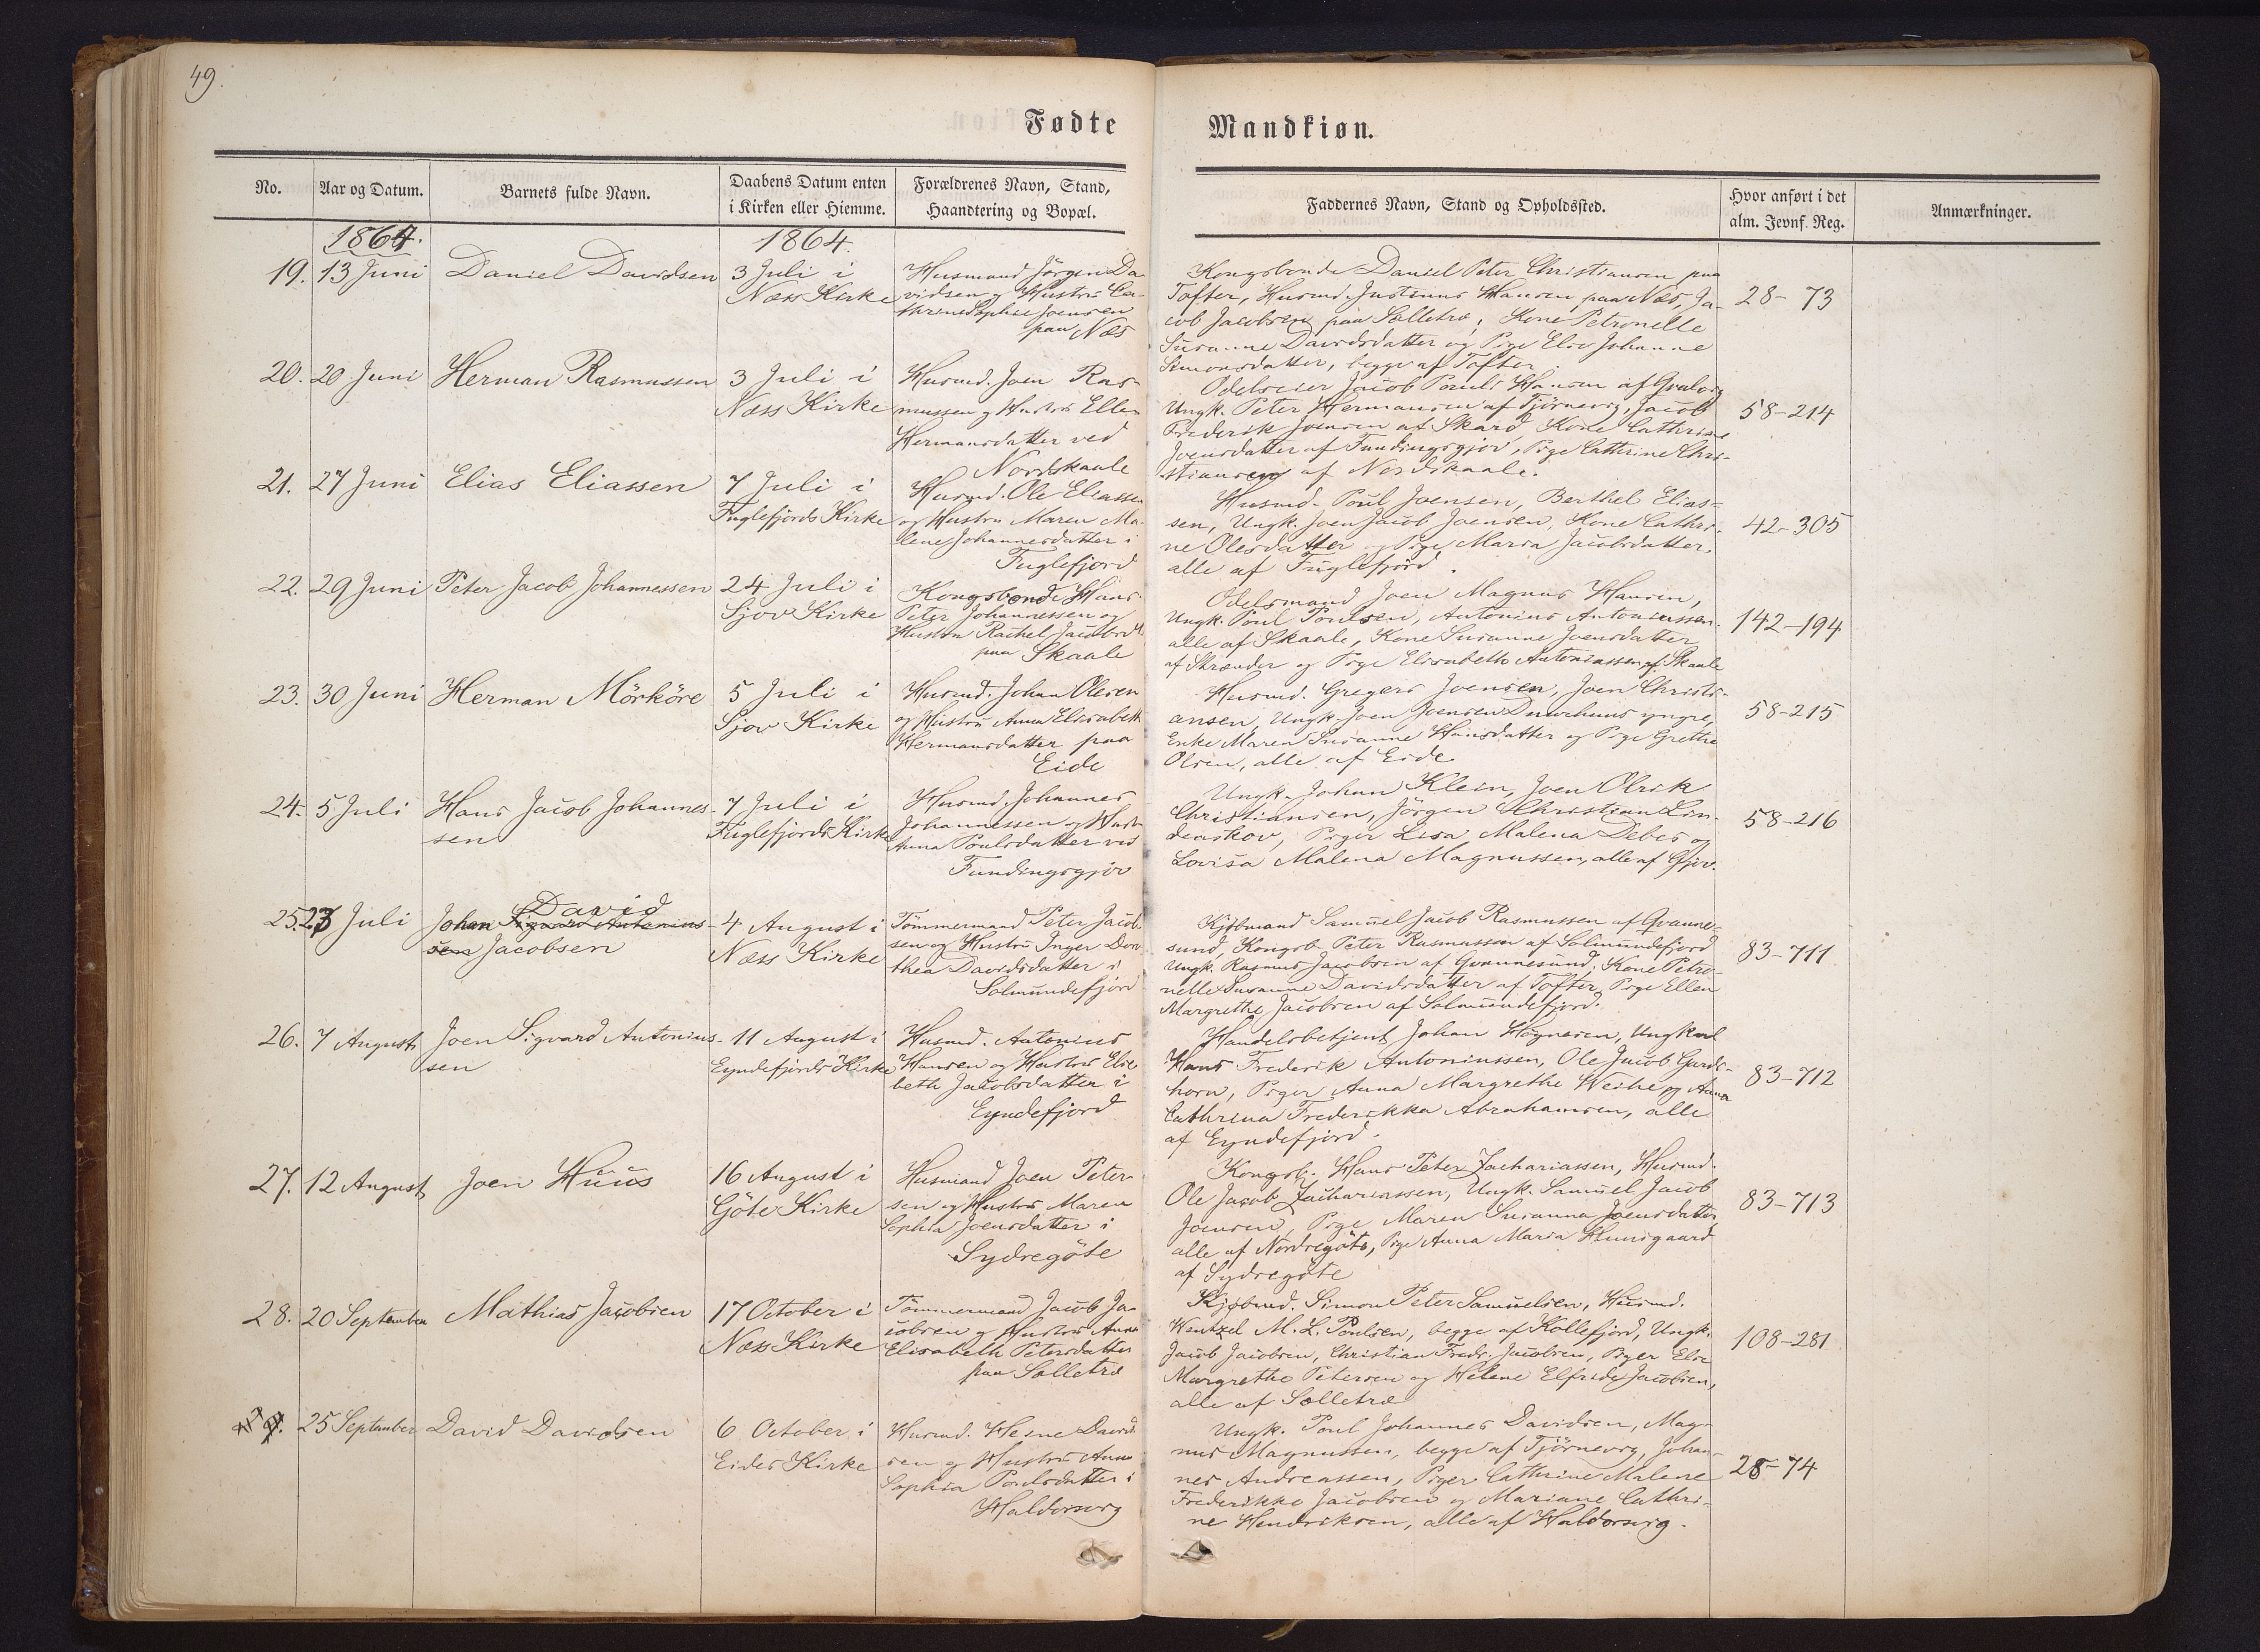 49.
Fødte
Mandkiøn.
No.
Aar og Datum.
Barnets fulde Navn.
Daabens Datum enten
i Kirken eller Hiemme.
Forældrenes Navn, Stand,
Haandtering og Bopæl.
Faddernes Navn, Stand og Opholdssted.
Hvor anført i det
alm. Jevnf. Reg.
Anmærkninger.
1864.
1864.
19. 13 Juni
Daniel Davidsen
3 Juli i
Næss Kirke
Husmand Jörgen Da-
vidsen og Hustru Ca-
thrine Sophie Joensen
paa Næs
Kongsbonde Daniel Peter Christiansen paa
Tofter, Husmd. Justinus Hansen paa Næs, Ja-
cob Jacobsen paa Salletræ, Kone Petronelle
Susanne Davidsdatter og Pige Else Johanne
Simonsdatter, begge af Tofter.
28-73
20. 20 Juni
Herman Rasmussen
3 Juli i
Næss Kirke
Husmd. Joen Ras-
mussen og Hustru Ellen
Hermansdatter ved
Nordskaale
Odelseier Jacob Pauli Hansen af Qvalvig
Ungk. Peter Hermansen af Tjörnevig, Jacob
Frederik Joensen af Skard, Kone Cathrine
Joensdatter af Fundingsgjov, Pige Cathrine Chri-
stiansen af Nordskaale.
58-214
21. 27 Juni
Elias Eliassen
7 Juli i
Fuglefjords Kirke
Husmd. Ole Eliassen
og Hustru Maren Ma-
lene Johannesdatter i
Fuglefjord
Husmd. Poul Joensen, Berthel Elias-
sen, Ungk. Joen Jacob Joensen, Kone Cathri-
ne Olesdatter og Pige Maria Jacobsdatter,
alle af Fuglefjord.
42-305
22. 29 Juni
Peter Jacob Johannessen
24 Juli i
Sjov Kirke
Kongsbonde Hans
Peter Johannessen og
Hustru Rachel Jacobsdt
paa Skaale
Odelsmand Joen Magnus Hansen,
Ungk. Poul Poulsen, Antonius Antoniussen
alle af Skaale, Kone Susanne Joensdatter
af Strænder og Pige Elisabeth Antoniassen af Skaale
142-194
23. 30 Juni
Herman Mörköre
5 Juli i
Sjov Kirke
Husmd. Johan Olesen
og Hustru Anna Elisabeth
Hermansdatter paa
Eide
Husmd. Gregers Joensen, Joen Christi-
ansen, Ungk. Joen Joensen Durhuus yngre,
Enke Maren Susanne Hansdatter og Pige Grethe
Olsen, alle af Eide
58-215
24. 5 Juli
Hans Jacob Johannes-
sen
7 Juli i
Fuglefjords Kirke
Husmd. Johannes
Johannessen og Hustru
Anna Poulsdatter ved
Fundingsgjov
Ungk. Johan Klein, Joen Olrik
Christiansen, Jörgen Christian Lin-
denskov, Piger Lisa Malena Debes og
Lovisa Malena Magnussen, alle af Gjov.
58-216
25. 23 Juli
David
Johan Sigvard Antonius-
sen Jacobsen
4 August i
Næss Kirke
Tömmermand Peter Jacob-
sen og Hustru Inger Doro-
thea Davidsdatter i
Solmundefjord
Kjöbmand Samuel Jacob Rasmussen af Qvanne-
sund, Kongsb. Peter Rasmussen af Solmundefjord
Ungk. Rasmus Jacobsen af Qvannesund, Kone Petro-
nelle Susanne Davidsdatter af Tofter, Pige Ellen
Margrethe Jacobsen af Solmundefjord.
83-711
26. 7 August
Joen Sigvard Antonius-
sen
11 August i
Eyndefjords Kirke
Husmd. Antonius
Hansen og Hustru Elisa-
beth Jacobsdatter i
Eyndefjord
Handelsbetjent Johan Högnesen, Ungkarl
Hans Frederik Antoniussen, Ole Jacob Gards-
horn, Piger Anna Margrethe Weihe og Anna
Cathrina Frederikka Abrahamsen, alle
af Eyndefjord.
83-712
27. 12 August
Joen Huus
16 August i
Göte Kirke
Husmand Joen Peter-
sen og Hustru Maren
Sophia Joensdatter i
Sydregöte
Kongsb. Hans Peter Zachariassen, Husmd.
Ole Jacob Zachariassen, Ungk. Samuel Jacob
Joensen, Pige Maren Susanna Joensdatter
alle af Nordregöte, Pige Anna Maria Huusgaard
af Sydregöte
83-713
28. 20 September
Mathias Jacobsen
17 October i
Næss Kirke
Tömmermand Jacob Ja-
cobsen og Hustru Anna
Elisabeth Petersdatter
paa Salletræ
Kjöbmd. Simon Peter Samuelsen, Husmd.
Wentzel M. L. Poulsen, begge af Kollefjord, Ungk.
Jacob Jacobsen, Christian Fredr. Jacobsen, Piger Else
Margrethe Petersen og Helene Elfride Jacobsen,
alle af Salletræ
108-281
29. 25 September
David Davidsen
6 October i
Eides Kirke
Husmd. Heine David-
sen og Hustru Anna
Sophia Poulsdatter i
Haldorsvig
Ungk. Poul Johannes Davidsen, Mag-
nus Magnussen, begge af Tjörnevig, Johan-
nes Andreassen, Piger Cathrine Malene
Frederikke Jacobsen og Mariane Cathri-
ne Hendriksen, alle af Haldorsvig.
28-74